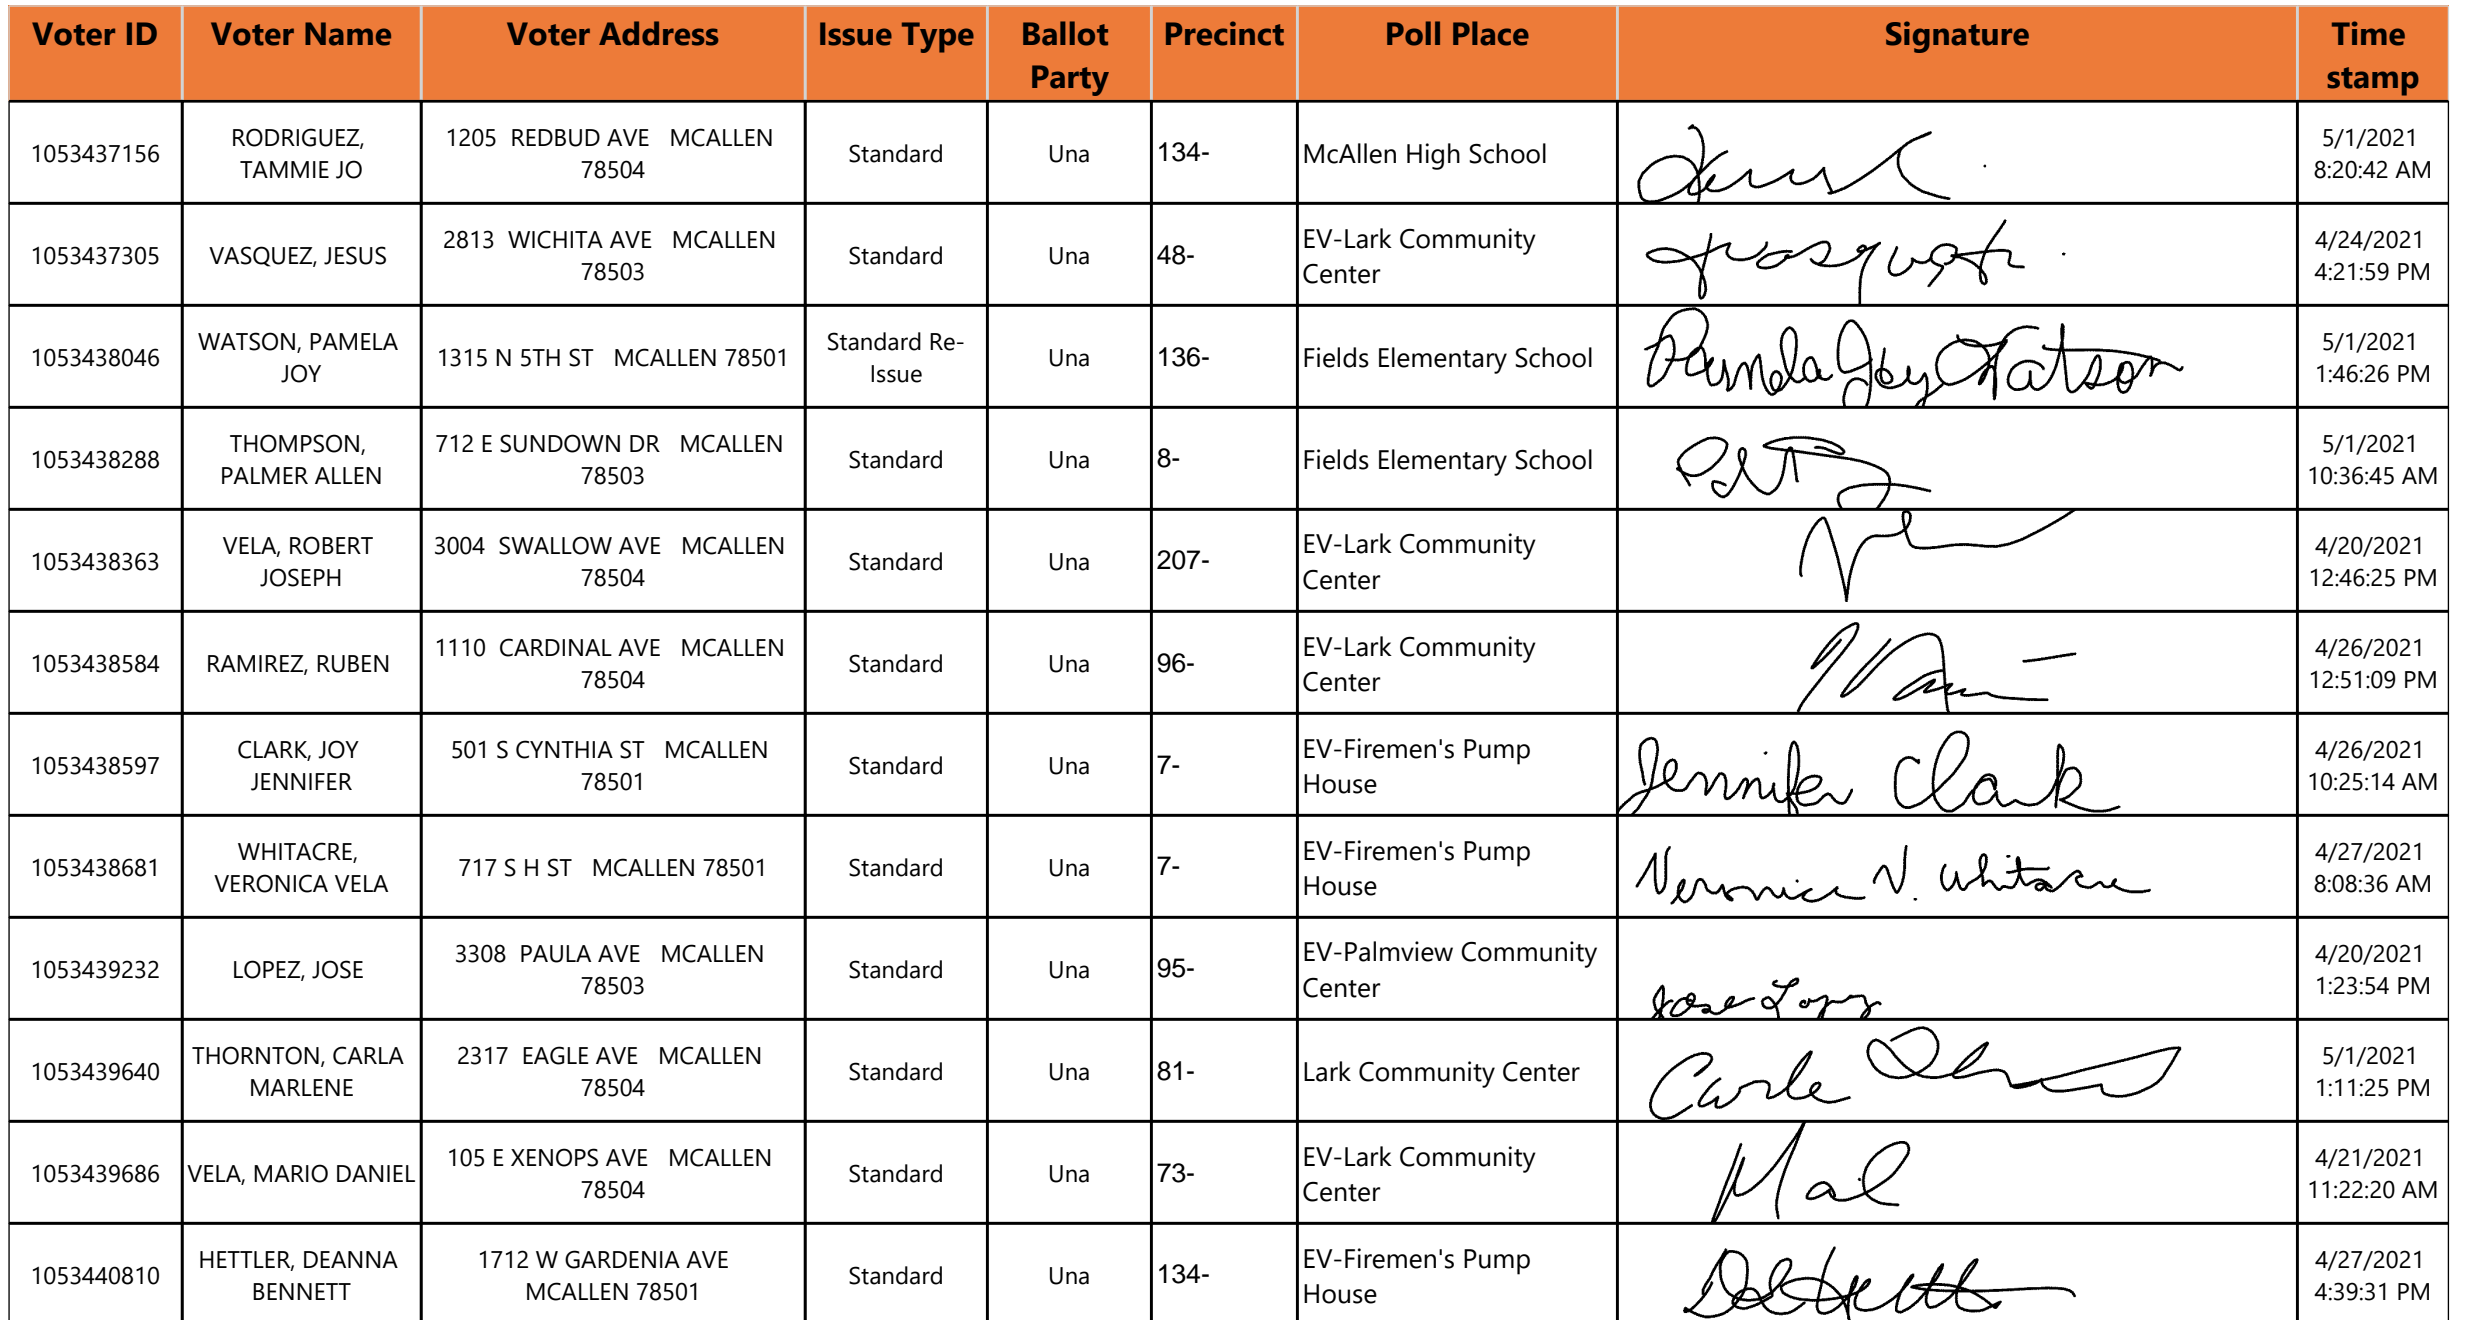 Voter ID Voter Name Voter Address Issue Type Ballot Party Precinct Poll Place Signature Time stamp
1053437156 RODRIGUEZ, TAMMIE JO 1205 REDBUD AVE MCALLEN 78504 Standard Una 134- McAllen High School 5/1/2021 8:20:42 AM
1053437305 VASQUEZ, JESUS 2813 WICHITA AVE MCALLEN 78503 Standard Una 48- EV-Lark Community Center 4/24/2021 4:21:59 PM
1053438046 WATSON, PAMELA JOY 1315 N 5TH ST MCALLEN 78501 Standard Re-Issue Una 136- Fields Elementary School Pamela Joy Watson 5/1/2021 1:46:26 PM
1053438288 THOMPSON, PALMER ALLEN 712 E SUNDOWN DR MCALLEN 78503 Standard Una 8- Fields Elementary School 5/1/2021 10:36:45 AM
1053438363 VELA, ROBERT JOSEPH 3004 SWALLOW AVE MCALLEN 78504 Standard Una 207- EV-Lark Community Center 4/20/2021 12:46:25 PM
1053438584 RAMIREZ, RUBEN 1110 CARDINAL AVE MCALLEN 78504 Standard Una 96- EV-Lark Community Center 4/26/2021 12:51:09 PM
1053438597 CLARK, JOY JENNIFER 501 S CYNTHIA ST MCALLEN 78501 Standard Una 7- EV-Firemen's Pump House Jennifer Clark 4/26/2021 10:25:14 AM
1053438681 WHITACRE, VERONICA VELA 717 S H ST MCALLEN 78501 Standard Una 7- EV-Firemen's Pump House Veronica V. Whitacre 4/27/2021 8:08:36 AM
1053439232 LOPEZ, JOSE 3308 PAULA AVE MCALLEN 78503 Standard Una 95- EV-Palmview Community Center Jose Lopez 4/20/2021 1:23:54 PM
1053439640 THORNTON, CARLA MARLENE 2317 EAGLE AVE MCALLEN 78504 Standard Una 81- Lark Community Center Carla 5/1/2021 1:11:25 PM
1053439686 VELA, MARIO DANIEL 105 E XENOPS AVE MCALLEN 78504 Standard Una 73- EV-Lark Community Center 4/21/2021 11:22:20 AM
1053440810 HETTLER, DEANNA BENNETT 1712 W GARDENIA AVE MCALLEN 78501 Standard Una 134- EV-Firemen's Pump House 4/27/2021 4:39:31 PM